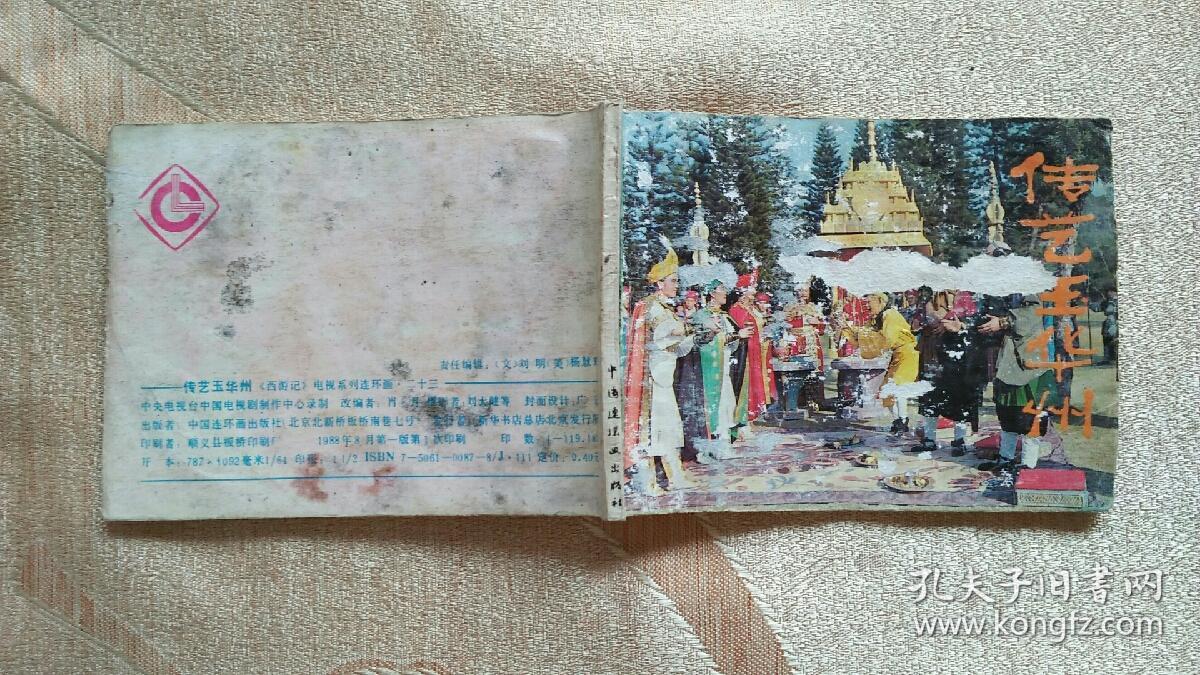 传艺玉华州
中国连环画出版社
责任编辑：（文）刘明（美）杨慧
传艺玉华州《西游记》电视系列连环画·二十三
中央电视台中国电视剧制作中心录制 改编者：肖 月 摄影者：刘大健等 封面设计：广
出版者：中国连环画出版社（北京北新桥板桥南巷七号） 发行者：新华书店总店北京发行所
印刷者：顺义县板桥印刷 1988年8月第一版第1次印刷 印数：1—119,
开本：787×1092毫米1/64 印张：1 1/2 ISBN 7-5061-0087-8/J·111 定价：0.40元
孔夫子旧书网
www.kongfz.com